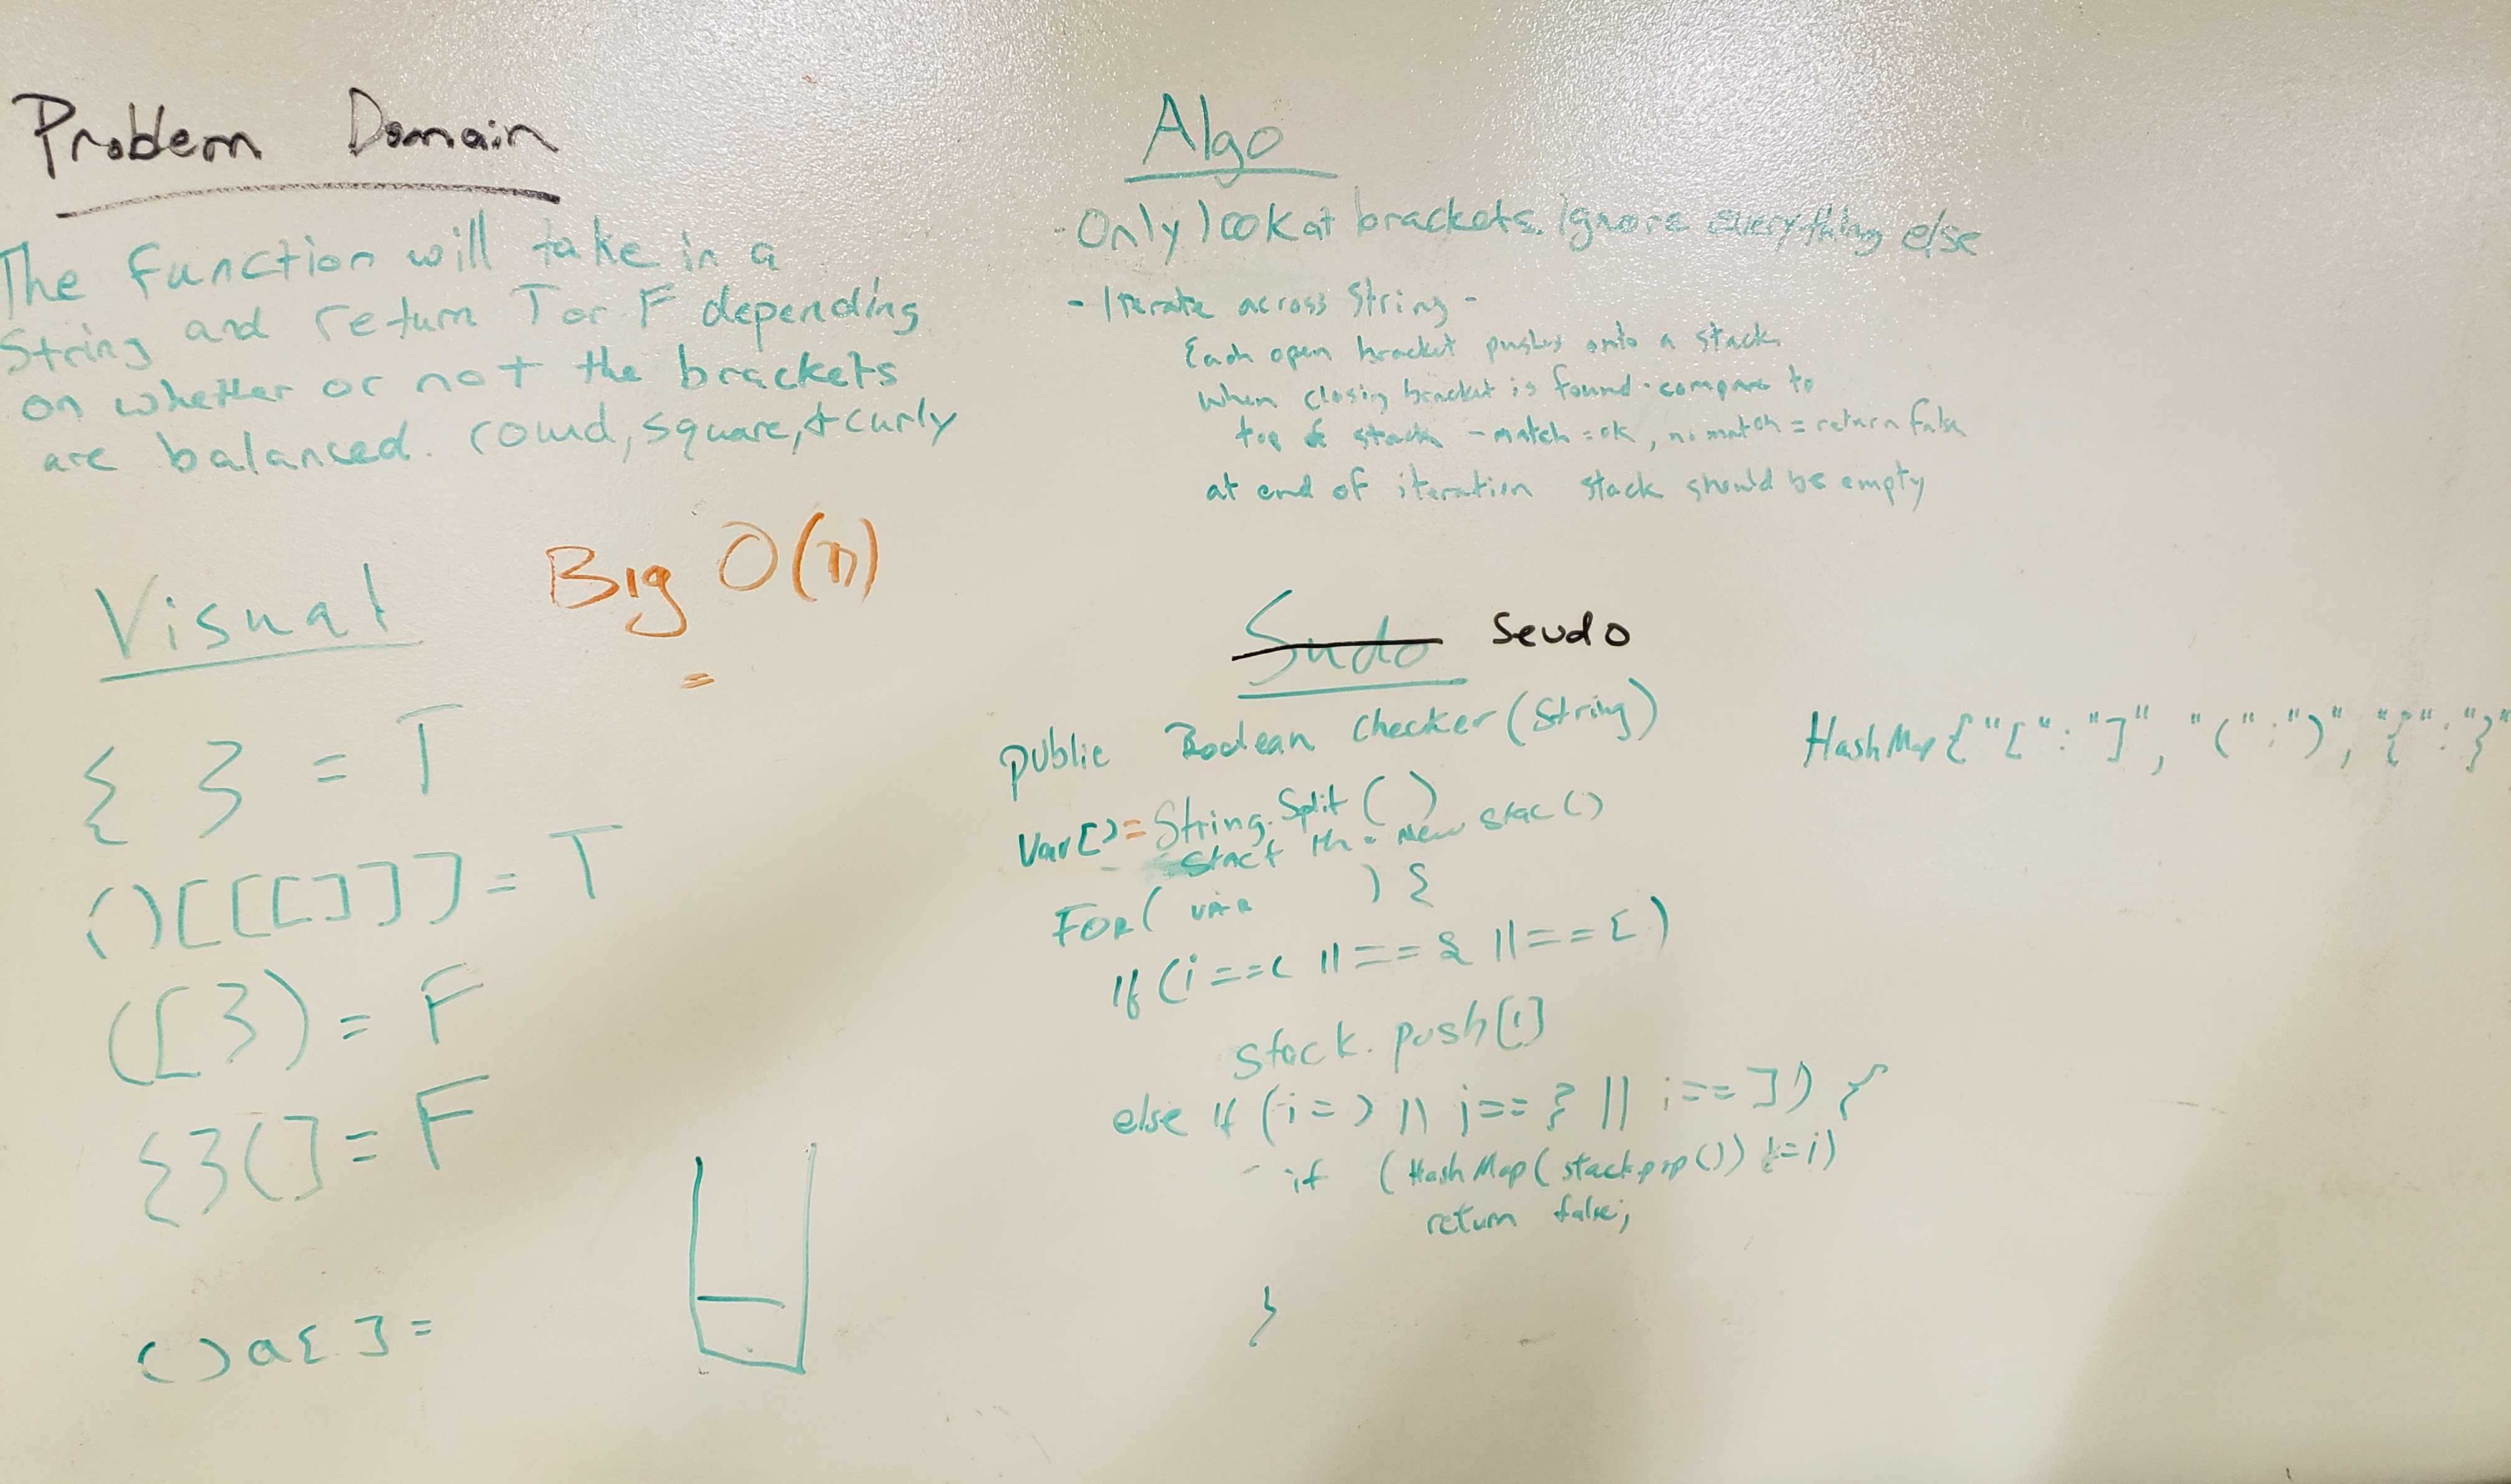 Problem Domain
The function will take in a
String and return T or F depending
on whether or not the brackets
are balanced. round, square, + curly
Big O(n)
=
Visual
{ } = T
()[[[]]] = T
([}) = F
{}(] = F
()a{ ] =
Algo
- Only look at brackets. Ignore everything else
- Iterate across String -
Each open bracket pushes onto a stack.
When closing bracket is found - compare to
top of stack - match = ok, no match = return false
at end of iteration stack should be empty
Sudo Seudo
public Boolean checker (String)
HashMap {"[" : "]", "(" : ")", "{" : "}"
Var[] = String.Split ()
= new stac ()
FOR ( var ) {
If (i == ( || == { || == [ )
Stack. push[i]
else if (i = ) || i == } || i == ]) {
if (HashMap (stack.pop()) != i)
return false;
}